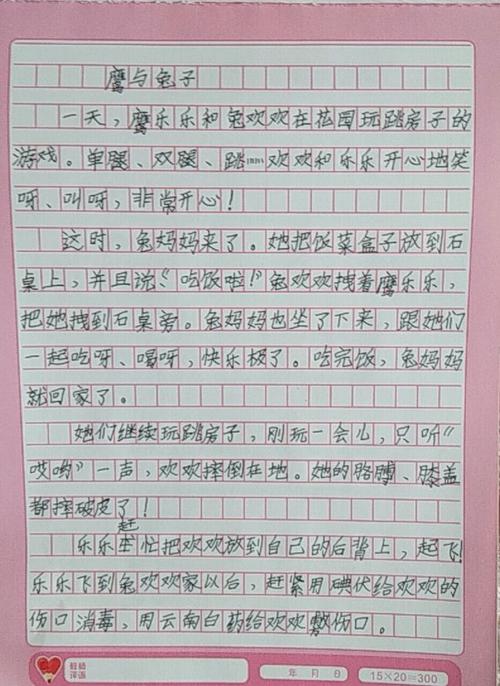 鹰与兔子
一天，鹰乐乐和兔欢欢在花园玩跳房子的
游戏。单腿、双腿、跳……欢欢和乐乐开心地笑
呀、叫呀，非常开心！
这时，兔妈妈来了。她把饭菜盒子放到石
桌上，并且说：“吃饭啦！”兔欢欢拽着鹰乐乐，
把她拽到石桌旁。兔妈妈也坐了下来，跟她们
一起吃呀、喝呀，快乐极了。吃完饭，兔妈妈
就回家了。
她们继续玩跳房子，刚玩一会儿，只听“
哎哟”一声，欢欢摔倒在地。她的胳膊、膝盖
都摔破皮了！
赶
乐乐忙把欢欢放到自己的后背上，起飞！
乐乐飞到兔欢欢家以后，赶紧用碘伏给欢欢的
伤口消毒，用云南白药给欢欢敷伤口。
教师
评语
年 月 日
15×20=300